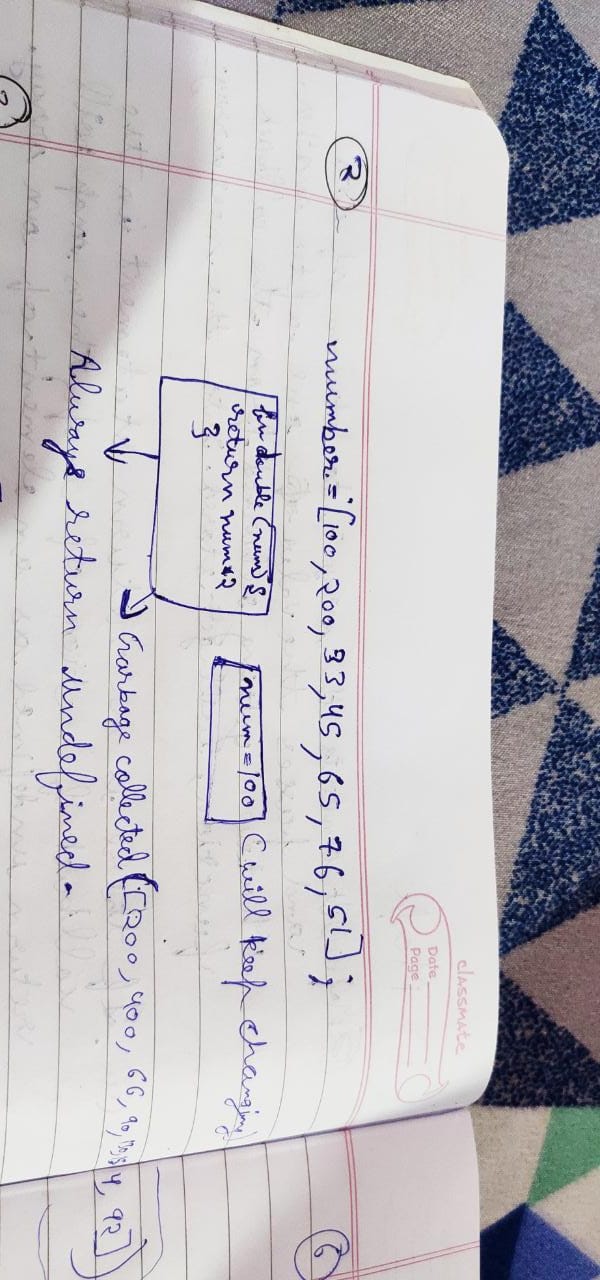 classmate
Date
Page
R
number = [100, 200, 33, 45, 65, 76, 51];
fn double (num) {
return num*2
}
num = 100 (will keep changing)
Garbage collected ([200, 400, 66, 90,
Always return undefined.
6